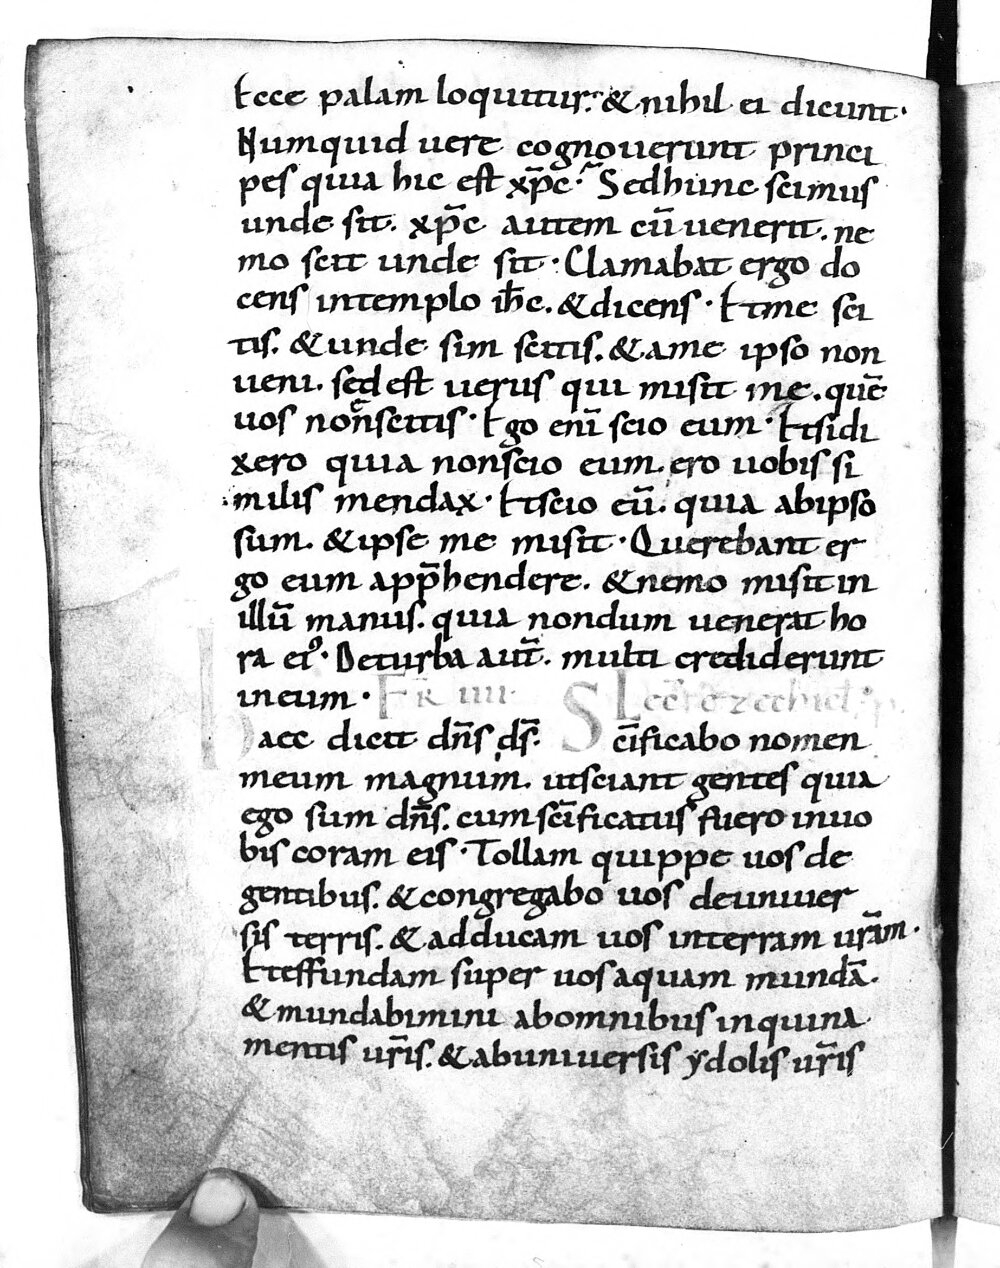 Ecce palam loquitur. & nihil ei dicunt.
Numquid uere cognouerunt princi
pes quia hic est xp̅c. Sed hunc scimus
unde sit. xp̅c autem cū uenerit. ne
mo scit unde sit. Clamabat ergo do
cens in templo ih̅c. & dicens. Et me sci
tis. & unde sim scitis. & a me ipso non
ueni. sed est uerus qui misit me. quē
uos non scitis. Ego enī scio eum. Et si di
xero quia non scio eum. ero uobis si
milis mendax. Et scio eū. quia ab ipso
sum. & ipse me misit. Querebant er
go eum app̅hendere. & nemo misit in
illū manus. quia nondum uenerat ho
ra eiꝰ. De turba aut̅. multi crediderunt
in eum. F̅R̅ IIII. Lec̅ Ezechiel. p.
Haec dicit dn̅s ds̅. Sc̅ificabo nomen
meum magnum. ut sciant gentes quia
ego sum dn̅s. cum sc̅ificatus fuero in uo
bis coram eis. Tollam quippe uos de
gentibus. & congregabo uos de uniuer
sis terris. & adducam uos in terram ur̅am.
Et effundam super uos aquam mundā.
& mundabimini ab omnibus inquina
mentis ur̅is. & ab uniuersis ydolis ur̅is